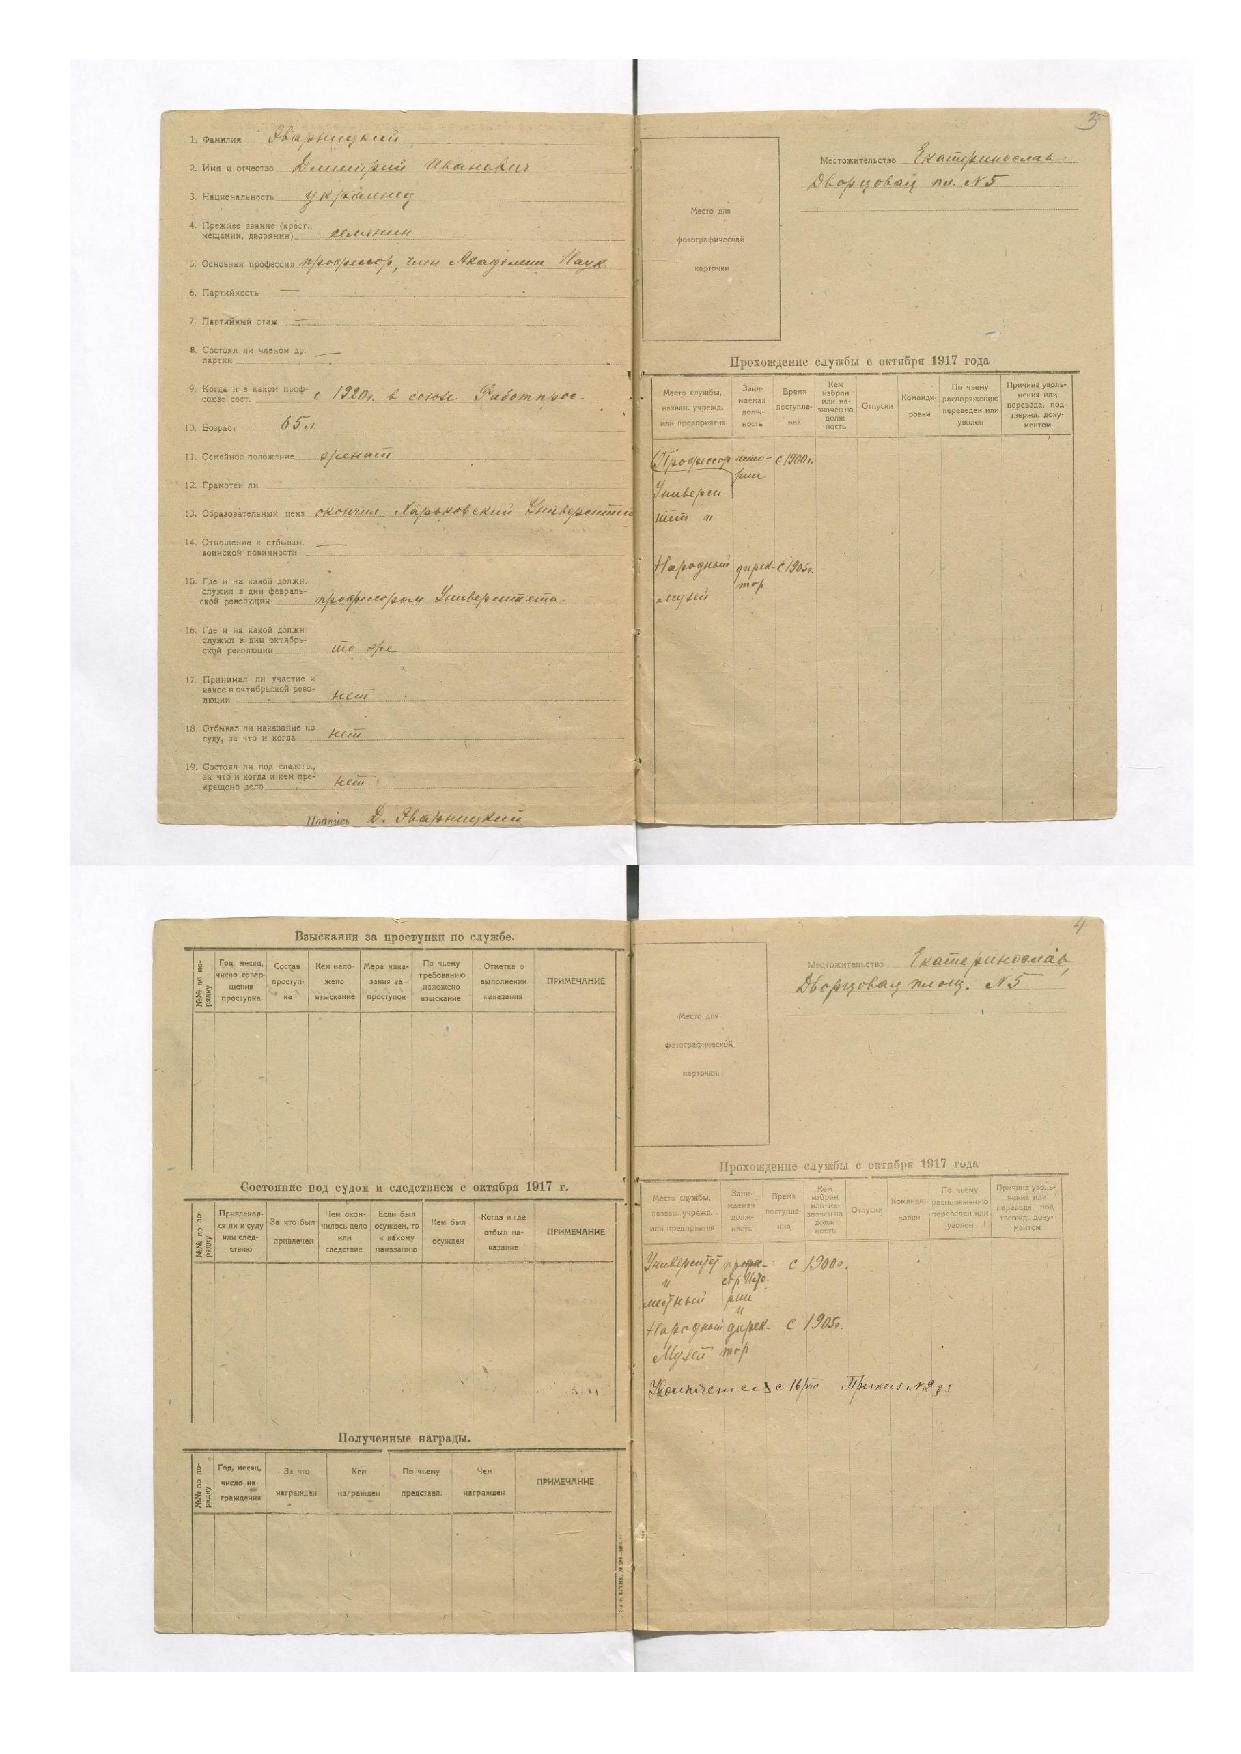 1. Фамилия Эварницкий
2. Имя и отчество Дмитрий Иванович
3. Национальность украинец
4. Прежнее звание (крест.
мещанин, дворянин)
5. Основная профессия профессор, член Академии Наук
6. Партийность —
7. Партийный стаж —
8. Состоял ли членом др.
партии —
9. Когда и в каком проф-
союзе сост. с 1920 г. в союзе Работпрос.
10. Возраст 65 л.
11. Семейное положение женат
12. Грамотен ли
13. Образовательный ценз окончил Харьковский Университет
14. Отношение к отбыван.
воинской повинности —
15. Где и на какой должн.
служил в дни февраль-
ской революции профессором Университета
16. Где и на какой должн.
служил в дни октябрь-
ской революции то же
17. Принимал ли участие и
какое в октябрьской рево-
люции нет
18. Отбывал ли наказание по
суду, за что и когда нет
19. Состоял ли под следств.,
за что и когда и кем пре-
кращено дело нет
Подпись Д. Эварницкий
3
Местожительство Екатеринослав.
Дворцовая пл. N 5
Место для
фотографической
карточки
Прохождение службы с октября 1917 года
Место службы,
назван. учрежд.
или предприятия
Зани-
маемая
долж-
ность
Время
поступле-
ния
Кем
избран
или на-
значен на
долж
ность
Отпуски
Команди-
ровки
По чьему
распоряжению
переведен или
уволен
Причина уволь-
нения или
перевода, под
твержд. доку-
ментом
Профессор исто- с 1900 г.
рии
Универси
тет "
Народный дирек- с 1905 г.
музей тор
Взыскания за проступки по службе.
№№ по по-
рядку
Год, месяц,
число совер-
шения
проступка
Состав
проступ-
ка
Кем нало-
жено
взыскание
Мера нака-
зания за
проступок
По чьему
требованию
наложено
взыскание
Отметка о
выполнении
наказания
ПРИМЕЧАНИЕ
Состояние под судом и следствием с октября 1917 г.
№№ по по-
рядку
Привлекал-
ся ли к суду
или след-
ствию
За что был
привлечен
Чем окон-
чилось дело
или
следствие
Если был
осужден, то
к какому
наказанию
Кем был
осужден
Когда и где
отбыл на-
казание
ПРИМЕЧАНИЕ
Полученные награды.
№№ по по-
рядку
Год, месяц,
число на-
граждения
За что
награжден
Кем
награжден
По чьему
представл.
Чем
награжден
ПРИМЕЧАНИЕ
4
Местожительство Екатеринослав,
Дворцовая площ. N 5
Место для
фотографической
карточки
Прохождение службы с октября 1917 года
Место службы,
назван. учрежд.
или предприятия
Зани-
маемая
долж-
ность
Время
поступле-
ния
Кем
избран
или на-
значен на
долж
ность
Отпуски
Команди-
ровки
По чьему
распоряжению
переведен или
уволен
Причина уволь-
нения или
перевода, под
твержд. доку-
ментом
Университет профе- с 1900 г.
" сор Исто-
местный рии
Народный дирек- с 1905 г.
Музей тор